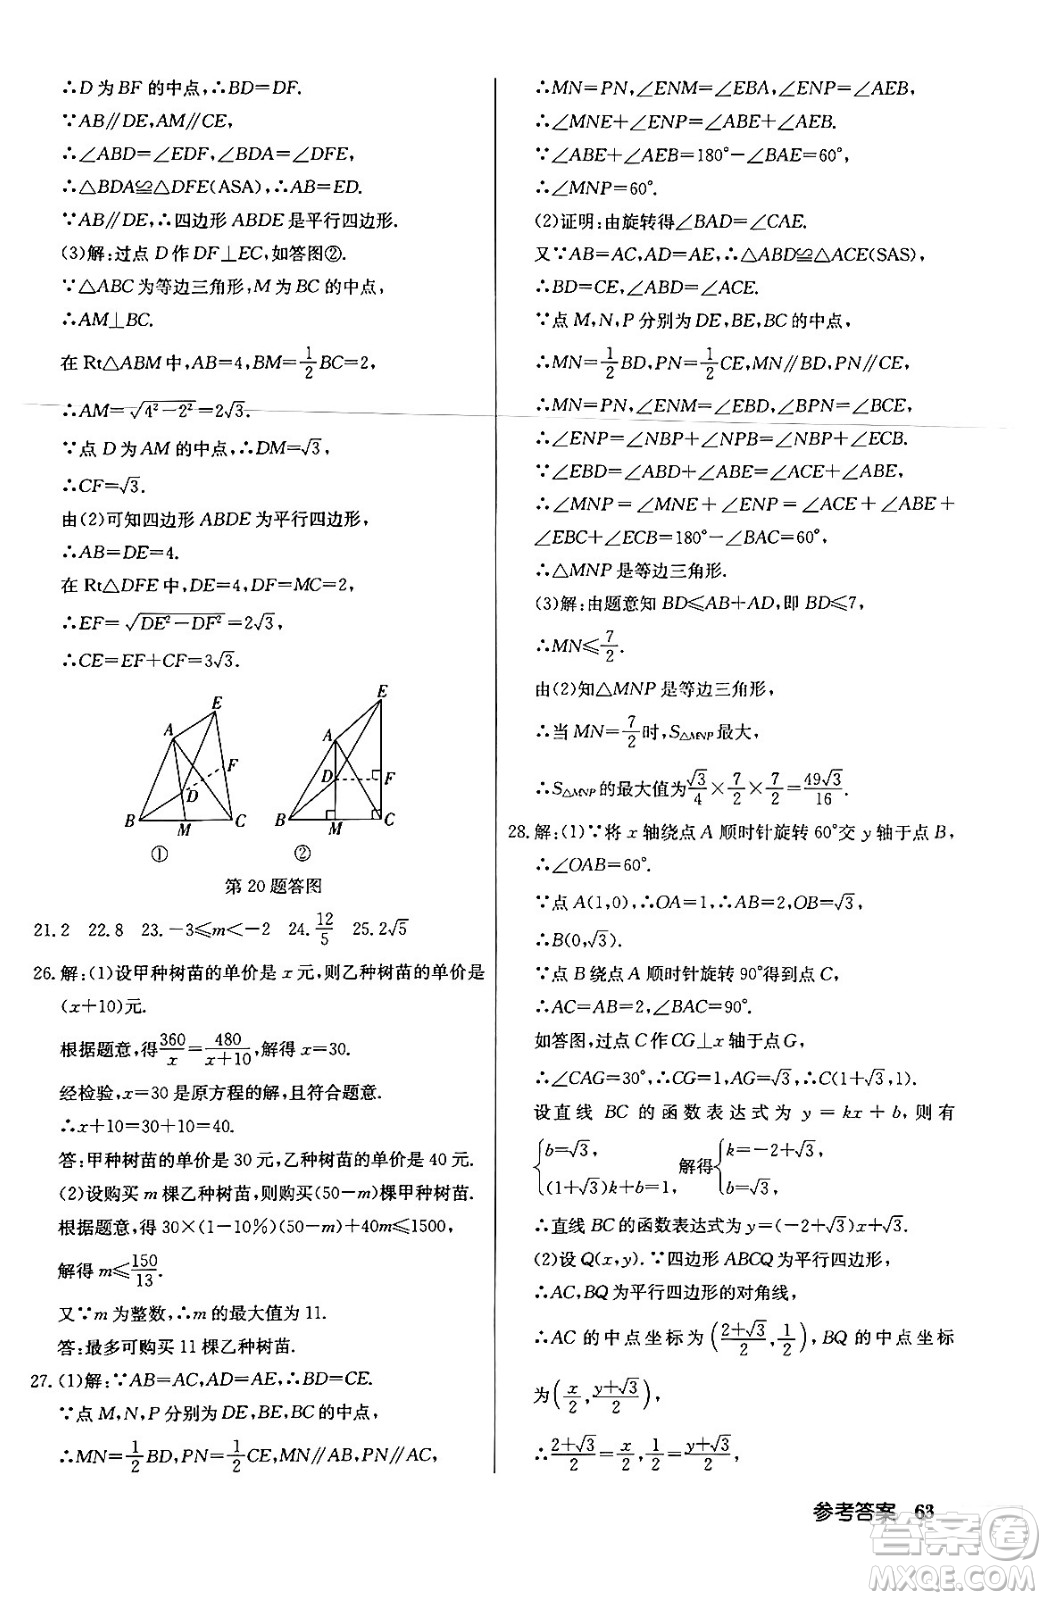 ∴D为BF的中点,∴BD=DF.
∵AB∥DE,AM∥CE,
∴∠ABD=∠EDF,∠BDA=∠DFE.
∴△BDA≌△DFE(ASA),∴AB=ED.
∵AB∥DE,∴四边形ABDE是平行四边形.
(3)解:过点D作DF⊥EC,如答图②.
∵△ABC为等边三角形,M为BC的中点,
∴AM⊥BC.
在Rt△ABM中,AB=4,BM=1/2BC=2,
∴AM=√(4²-2²)=2√3.
∵点D为AM的中点,∴DM=√3.
∴CF=√3.
由(2)可知四边形ABDE为平行四边形,
∴AB=DE=4.
在Rt△DFE中,DE=4,DF=MC=2,
∴EF=√(DE²-DF²)=2√3,
∴CE=EF+CF=3√3.
E
A
F
D
B M C
①
E
A
D F
B M C
②
第20题答图
21.2 22.8 23.-3≤m<-2 24.12/5 25.2√5
26.解:(1)设甲种树苗的单价是x元,则乙种树苗的单价是
(x+10)元.
根据题意,得360/x=480/(x+10),解得x=30.
经检验,x=30是原方程的解,且符合题意.
∴x+10=30+10=40.
答:甲种树苗的单价是30元,乙种树苗的单价是40元.
(2)设购买m棵乙种树苗,则购买(50-m)棵甲种树苗.
根据题意,得30×(1-10%)(50-m)+40m≤1500,
解得m≤150/13.
又∵m为整数,∴m的最大值为11.
答:最多可购买11棵乙种树苗.
27.(1)解:∵AB=AC,AD=AE,∴BD=CE.
∵点M,N,P分别为DE,BE,BC的中点,
∴MN=1/2BD,PN=1/2CE,MN∥AB,PN∥AC,
∴MN=PN,∠ENM=∠EBA,∠ENP=∠AEB,
∴∠MNE+∠ENP=∠ABE+∠AEB.
∵∠ABE+∠AEB=180°-∠BAE=60°,
∴∠MNP=60°.
(2)证明:由旋转得∠BAD=∠CAE.
又∵AB=AC,AD=AE,∴△ABD≌△ACE(SAS),
∴BD=CE,∠ABD=∠ACE.
∵点M,N,P分别为DE,BE,BC的中点,
∴MN=1/2BD,PN=1/2CE,MN∥BD,PN∥CE,
∴MN=PN,∠ENM=∠EBD,∠BPN=∠BCE,
∴∠ENP=∠NBP+∠NPB=∠NBP+∠ECB.
∵∠EBD=∠ABD+∠ABE=∠ACE+∠ABE,
∴∠MNP=∠MNE+∠ENP=∠ACE+∠ABE+
∠EBC+∠ECB=180°-∠BAC=60°,
∴△MNP是等边三角形.
(3)解:由题意知BD≤AB+AD,即BD≤7,
∴MN≤7/2.
由(2)知△MNP是等边三角形,
∴当MN=7/2时,S△MNP最大,
∴S△MNP的最大值为√3/4×7/2×7/2=49√3/16.
28.解:(1)∵将x轴绕点A顺时针旋转60°交y轴于点B,
∴∠OAB=60°.
∵点A(1,0),∴OA=1,∴AB=2,OB=√3.
∴B(0,√3).
∵点B绕点A顺时针旋转90°得到点C,
∴AC=AB=2,∠BAC=90°.
如答图,过点C作CG⊥x轴于点G,
∴∠CAG=30°,∴CG=1,AG=√3,∴C(1+√3,1).
设直线BC的函数表达式为y=kx+b,则有
{b=√3, (1+√3)k+b=1, 解得{k=-2+√3, b=√3.
∴直线BC的函数表达式为y=(-2+√3)x+√3.
(2)设Q(x,y).∵四边形ABCQ为平行四边形,
∴AC,BQ为平行四边形的对角线,
∴AC的中点坐标为((2+√3)/2,1/2),BQ的中点坐标
为(x/2,(y+√3)/2)
∴(2+√3)/2=x/2,1/2=(y+√3)/2,
参考答案 63
答案圈
MXQE.COM